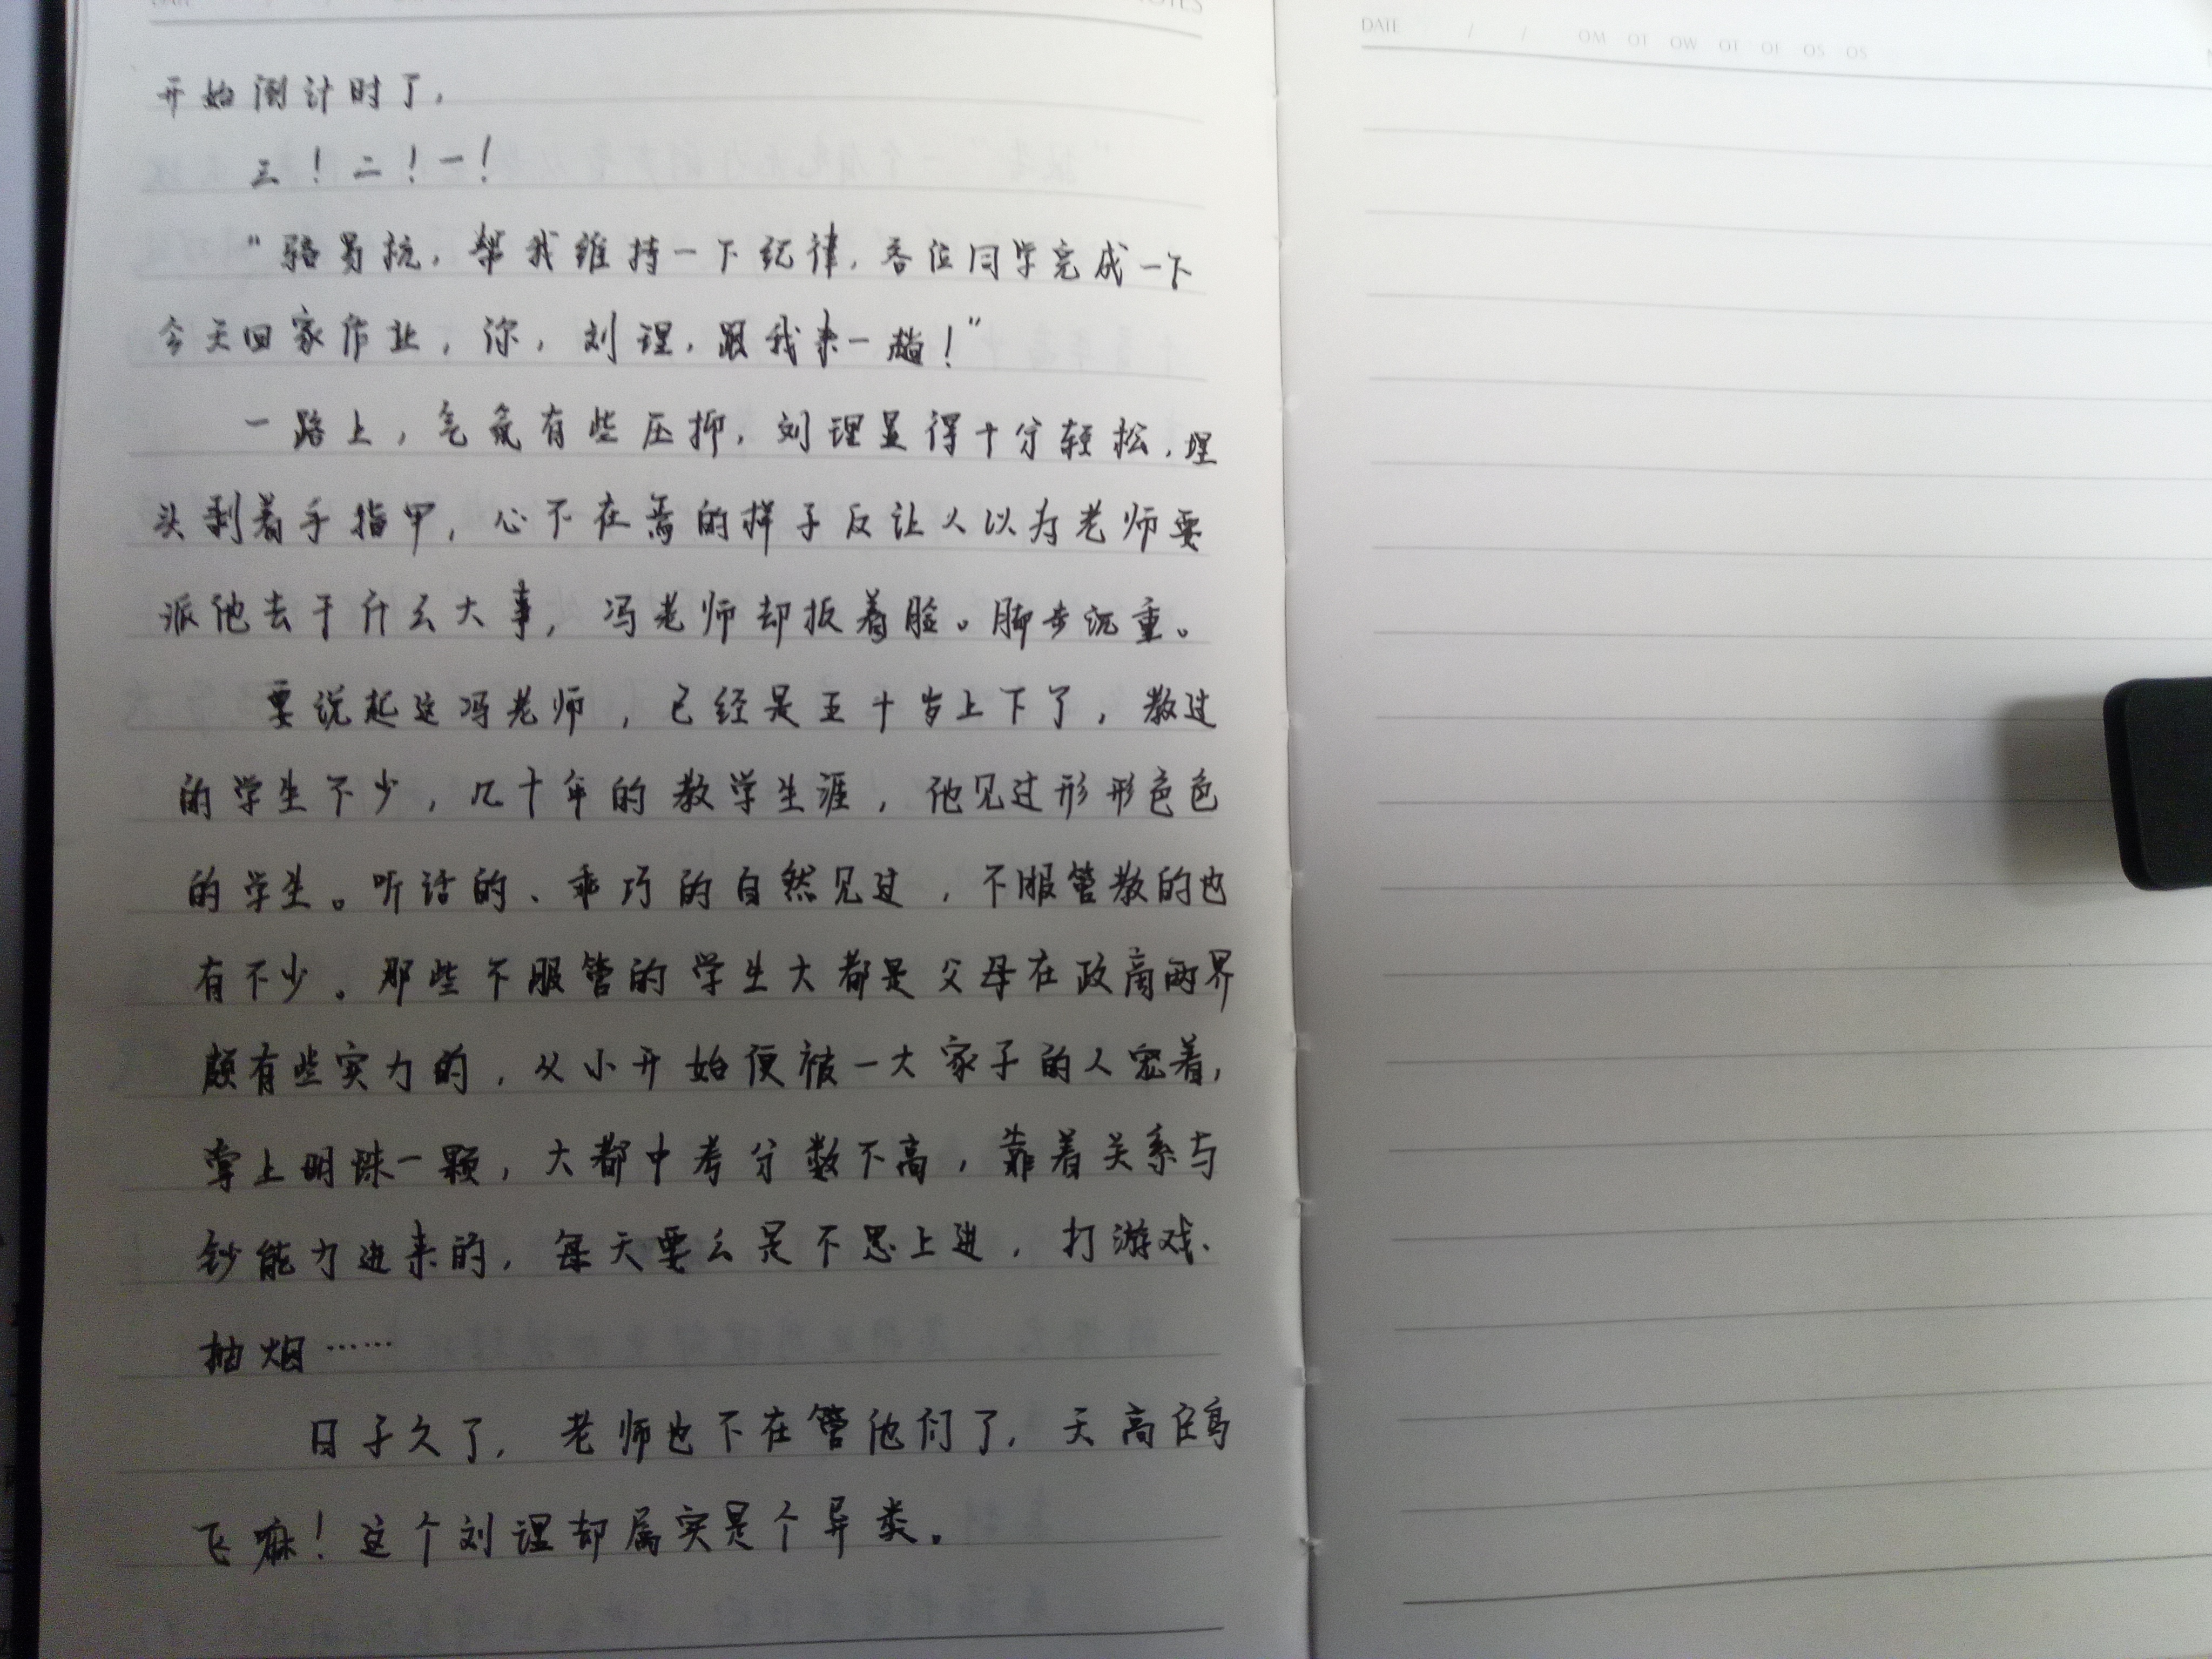 开始倒计时了，
三！二！一！
“骆易抗，帮我维持一下纪律，各位同学完成一下
今天回家作业，你，刘理，跟我来一趟！”
一路上，气氛有些压抑，刘理显得十分轻松，埋
头剥着手指甲，心不在焉的样子反让人以为老师要
派他去干什么大事，冯老师却板着脸。脚步沉重。
要说起这冯老师，已经是五十岁上下了，教过
的学生不少，几十年的教学生涯，他见过形形色色
的学生。听话的、乖巧的自然见过，不服管教的也
有不少。那些不服管的学生大都是父母在政商两界
颇有些实力的，从小开始便被一大家子的人宠着，
掌上明珠一颗，大都中考分数不高，靠着关系与
钞能力进来的，每天要么是不思上进，打游戏、
抽烟……
日子久了，老师也不在管他们了，天高任鸟
飞嘛！这个刘理却属实是个异类。
DATE / /